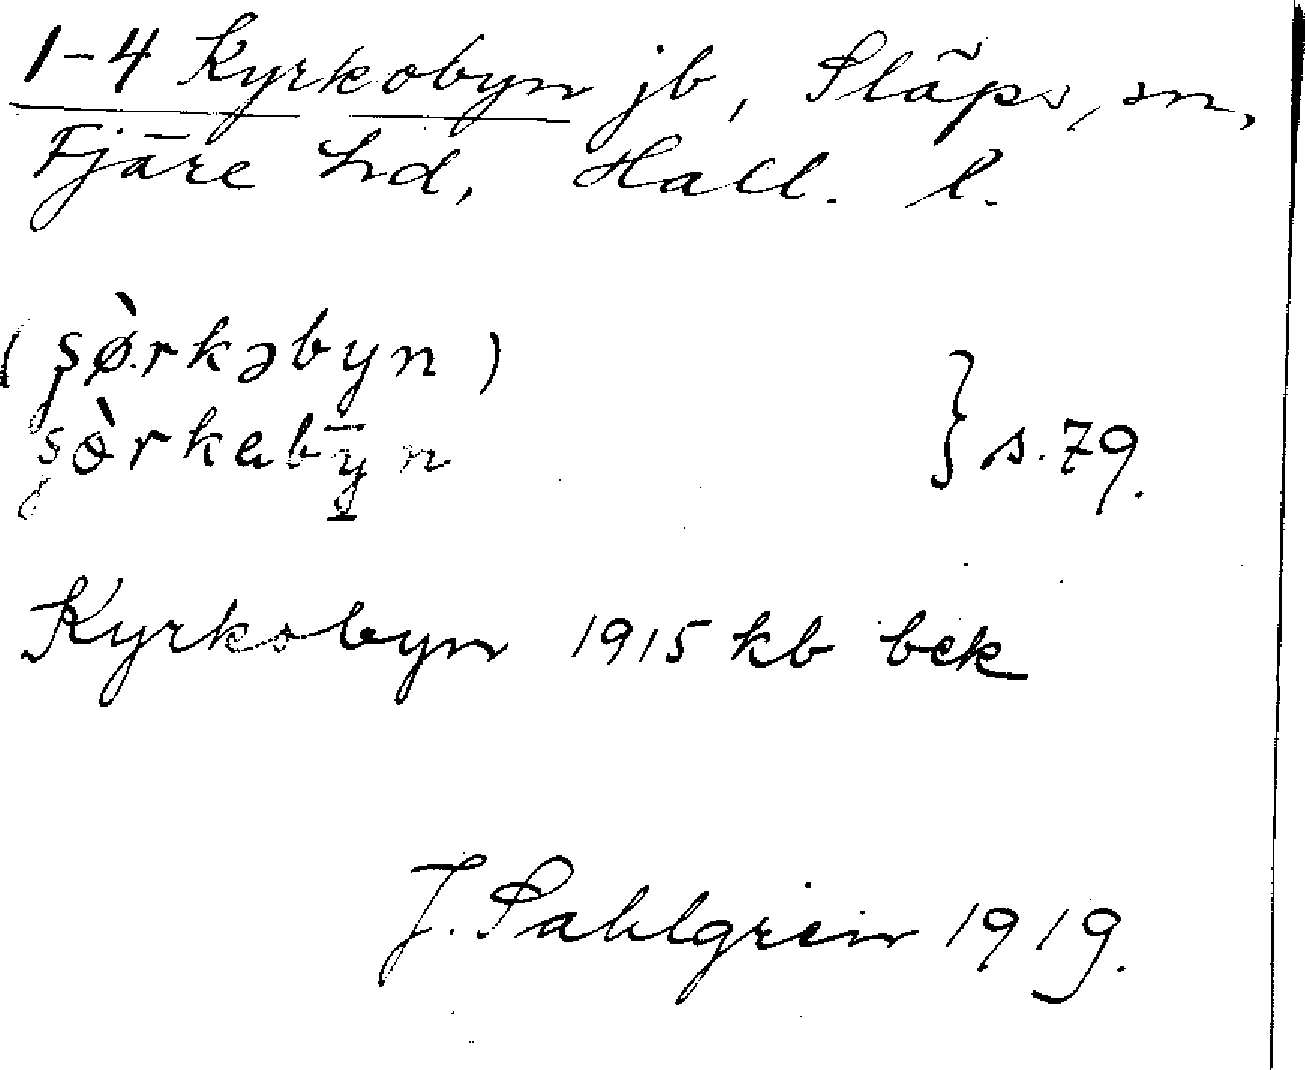 1-4 Kyrkobyn jb, Släps sn,
Fjäre hd, Hall. l.
(ʂø̀rkəbyn)
ʂø̀rkabȳn } s. 79.
Kyrkobyn 1915 kb bek
J. Sahlgren 1919.